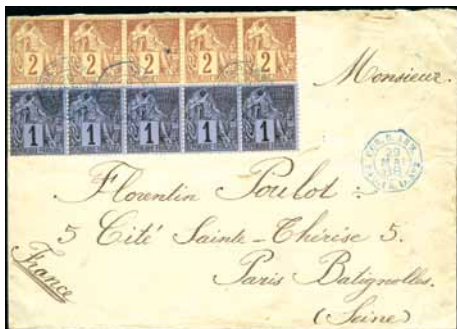 2 2 2 2 2
1 1 1 1 1
Monsieur.
Florentin Poulot :
5 Cité Sainte-Thérèse 5.
Paris Batignolles.
(Seine)
France